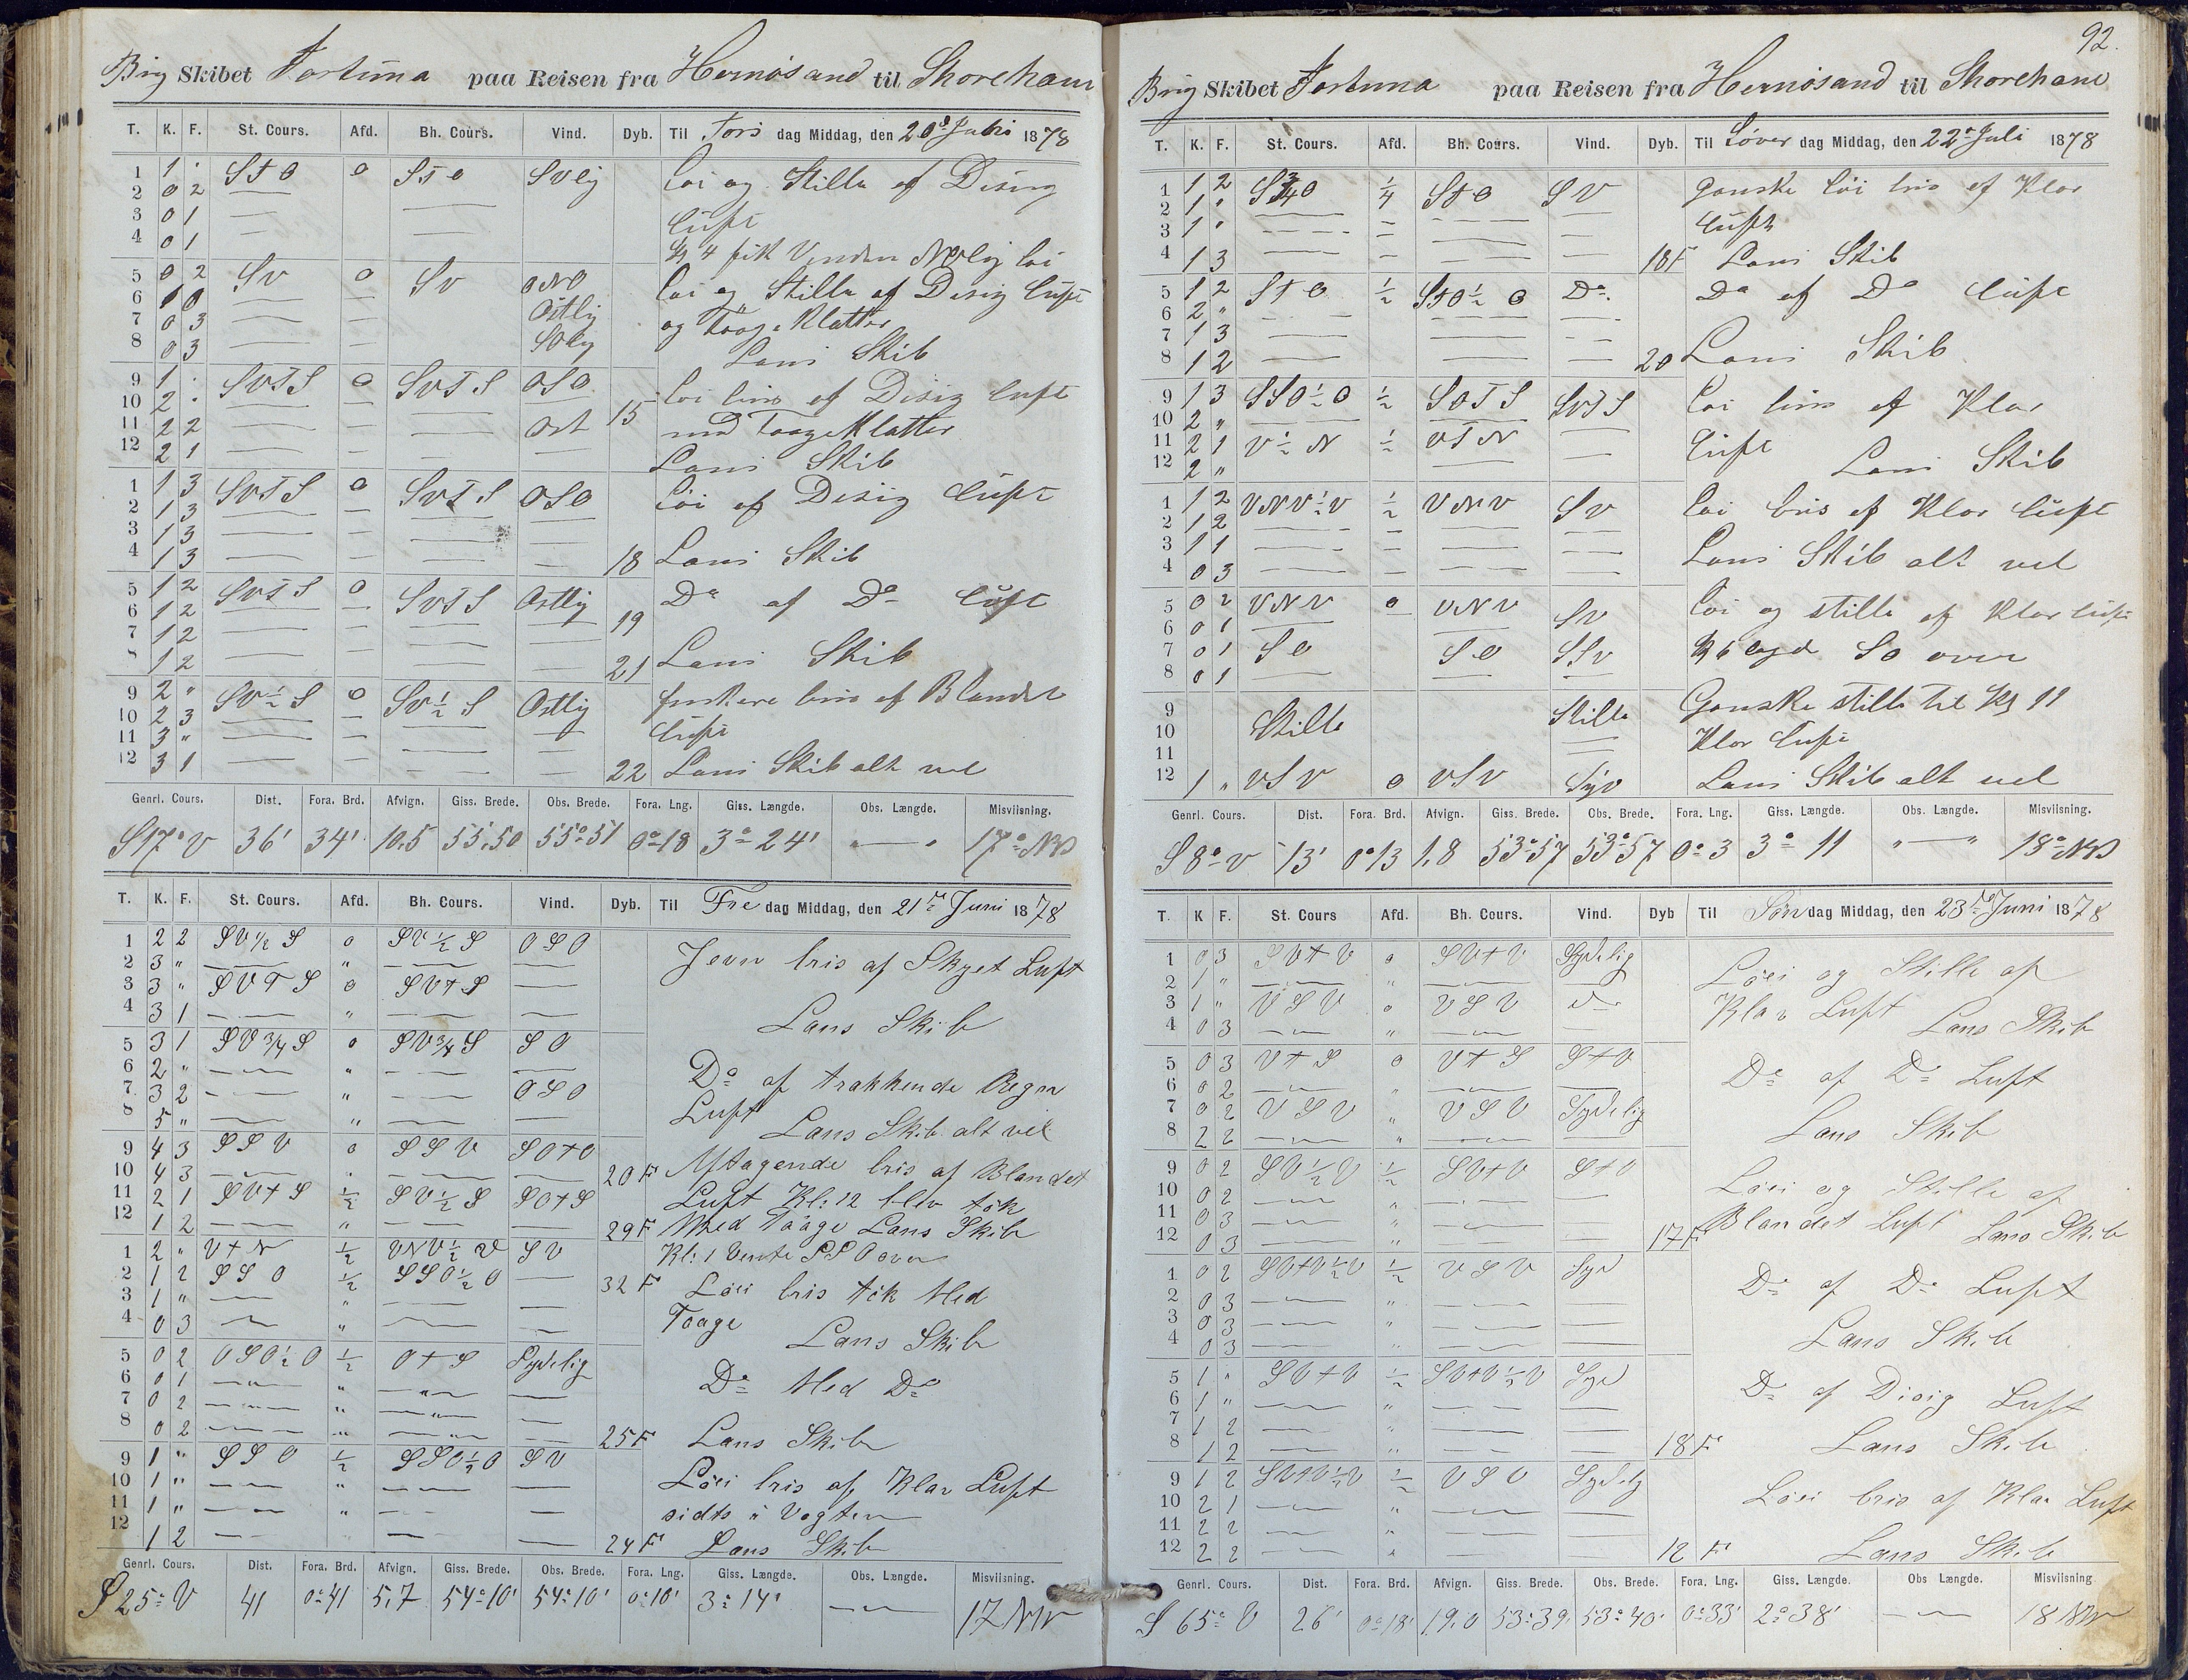 Brig Skibet Fortuna paa Reisen fra Hernösand til Shoreham
T. K. F. St. Cours. Afd. Bh. Cours. Vind. Dyb. Til Tors dag Middag, den 20de Juli 1878
1 1 . StO 0 StO SVlig Löi og Stille af Disig
2 0 2
3 0 1 Luft
4 0 1 Kl 4 fik Vinden NOlig löi
5 0 2 SV 0 SV ONO Löi og Stille af Disig Luft
6 1 0 Ostlig
7 0 3 og TaageKlatter
8 0 3 SOlig Lans Skib
9 1 . SVTS 0 SVTS OSO Löi bris af Disig Luft
10 2 . 15
11 2 2 Ost med TaageKlatter
12 2 1 Lans Skib
1 1 3 SVTS 0 SVTS OSO Löi af Disig Luft
2 1 3
3 1 3
4 1 3 18 Lans Skib
5 1 2 SVTS 0 SVTS Ostlig Do af Do Luft
6 1 2 19
7 1 2
8 1 2 21 Lans Skib
9 2 " SV½S 0 SV½S Ostlig friskere bris af Blandet
10 2 3
11 3 " Luft
12 3 1 22 Lans Skib alt vel
Genrl. Cours. Dist. Fora. Brd. Afvign. Giss. Brede. Obs. Brede. Fora. Lng. Giss. Længde. Obs. Længde. Misviisning.
S17°V 36' 34' 10.5 55.50 55°51 0°18 3°24' " — " 17° NV
T. K. F. St. Cours. Afd. Bh. Cours. Vind. Dyb. Til Fre dag Middag, den 21de Juni 1878
1 2 2 SV½S 0 SV½S OSO Jevn bris af Skyet Luft
2 3 " "
3 3 " SVTS 0 SVtS
4 3 1 " Lans Skib
5 3 1 SV¾S 0 SV¾S SO
6 2 " " Do af trækkende Regn
7 3 2 " OSO Luft
8 5 " " Lans Skib alt vel
9 4 3 SSV 0 SSV SOtO
10 4 3 " 20 F Aftagende bris af Blandet
11 2 1 SVtS ½ SV½S SOtS Luft Kl: 12 blev tök
12 1 2 " 29 F Med Taage Lans Skib
1 2 " VtN ½ VNV½V SV Kl: 1 Vente SSO over
2 1 2 SSO ½ SSO½O 32 F Löei bris tök Med
3 1 " " Taage
4 0 3 " Lans Skib
5 0 2 OSO½O ½ OtS Sydelig
6 0 1 " Do Med Do
7 0 2 "
8 0 2 " 25 F Lans Skib
9 1 " SSO ½ SSO½O SV Löei bris af Klar Luft
10 1 " "
11 1 " " sidts i Vagten
12 1 2 24 F Lans Skib
Genrl. Cours. Dist. Fora. Brd. Afvign. Giss. Brede. Obs. Brede. Fora. Lng. Giss. Længde. Obs. Længde. Misviisning.
S 25° V 41 0°41 5,7 54°10' 54°10' 0°10' 3°14' — 17 NV
92.
Brig Skibet Fortuna paa Reisen fra Hernösand til Shoreham
T. K. F. St. Cours. Afd. Bh. Cours. Vind. Dyb. Til Löver dag Middag, den 22de Juli 1878
1 1 2 S¾O ¼ StO SV Ganske löi bris af Klar
2 1 "
3 1 " Luft
4 1 3 18F Lans Skib
5 1 2 StO ½ StO½O Do. Do af Do Luft
6 2 "
7 1 3
8 1 2 20 Lans Skib
9 1 3 SSO½O ½ SOTS SVTS Löi bris af Klar
10 2 "
11 2 1 V½N ½ VTN Luft
12 2 " Lans Skib
1 1 2 VNV½V ½ VNV SV Löi bris af Klar Luft
2 1 2
3 1 1 Lans Skib alt vel
4 0 3
5 0 2 VNV 0 VNV SV Löi og stille af Klar luft
6 0 1
7 0 1 SO SO SSV Kl 6 lagde SO over
8 0 1
9 Stille Stille Ganske stille til Kl 11
10
11 Klar Luft
12 1 " VSV 0 VSV Syd Lans Skib alt vel
Genrl. Cours. Dist. Fora. Brd. Afvign. Giss. Brede. Obs. Brede. Fora. Lng. Giss. Længde. Obs. Længde. Misviisning.
S 8° V 13' 0°13 1,8 53°57 53°57 0°3 3° 11 " — " 18° NV
T. K F. St. Cours Afd. Bh. Cours. Vind. Dyb Til Sön dag Middag, den 23de Juni 1878
1 0 3 SVtV 0 SVtV Sydelig Löei og Stille af
2 1 " "
3 1 " VSV 0 VSV Do Klar Luft
4 0 3 " Lans Skib
5 0 3 VtS 0 VtS StV Do af Do Luft
6 0 2 "
7 0 2 VSV " VSV Sydelig
8 2 2 " Lans Skib
9 0 2 SV½V ½ SVtV StV Löei og Stille af
10 0 2 "
11 0 3 " Blandet Luft
12 0 3 " 17F Lans Skib
1 0 2 SVtV½V ½ VSV Syd Do af Do Luft
2 0 3 "
3 0 3 "
4 0 3 " Lans Skib
5 1 " SVtV ½ SVtV½V Syd Do af Disig Luft
6 1 " "
7 1 2
8 1 2 " 18 F Lans Skib
9 1 2 SVtV½V ½ VSV Sydelig
10 2 1 " Löei bris af Klar Luft
11 2 2 "
12 2 2 " 12 F Lans Skib
Genrl. Cours. Dist. Fora. Brd. Afvign. Giss. Brede. Obs. Brede. Fora. Lng. Giss. Længde. Obs Længde. Misviisning.
S 65° V 26' 0°18' 19.0 53°39. 53°40' 0°33' 2°38' — 18 NV